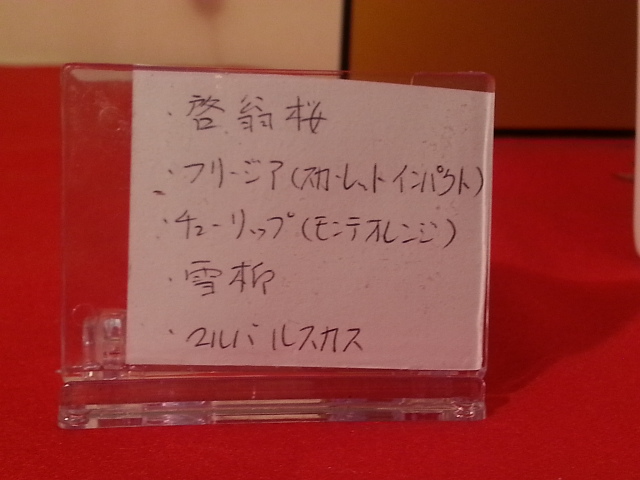 ・啓翁桜
・フリージア(スカーレットインパクト)
・チューリップ(モンテオレンジ)
・雪柳
・コルバルスカス